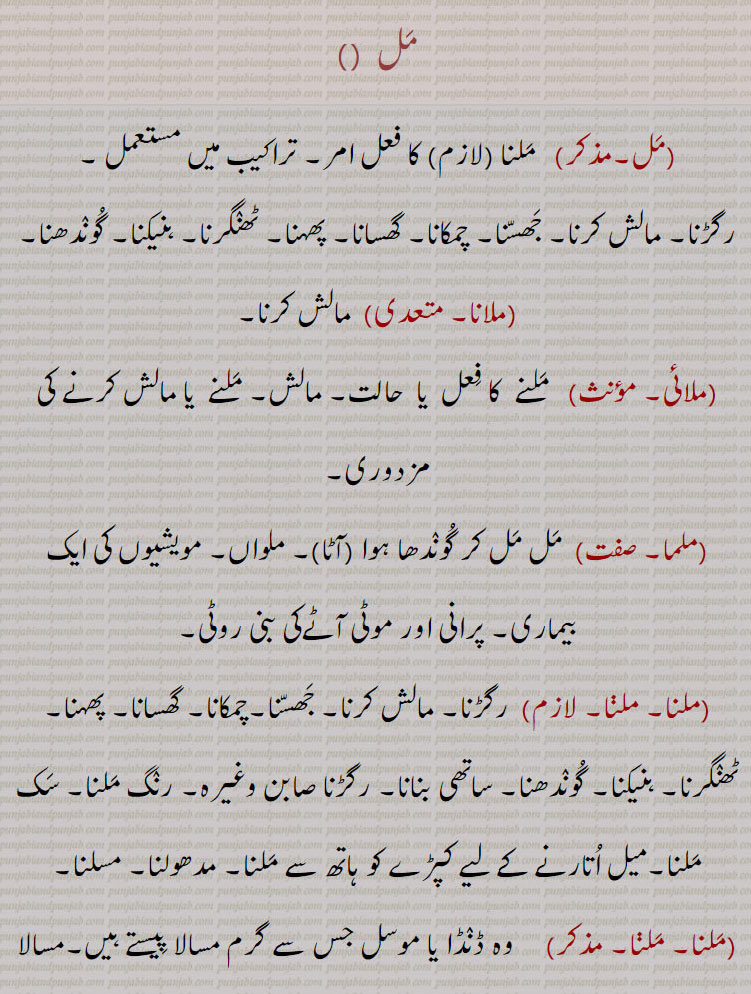 مَل ()
(مَل۔مذکر) مَلنا (لازم) کا فعل امر ۔ تراکیب میں مستعمل ۔
رگڑنا۔ مالش کرنا۔ جَھسّنا۔ چمکانا۔ گھسانا۔ پھہنا۔ ٹھنگرنا۔ ہنیکنا۔ گُوندھنا۔
(ملانا۔ متعدی) مالش کرنا۔
(ملائی۔ مؤنث) مَلنے کا فِعل یا حالت۔ مالش۔ مَلنے یا مالش کرنے کی
مزدوری۔
(ملما۔ صفت) مَل مَل کر گُوندھا ہوا (آٹا)۔ ملواں۔ مویشیوں کی ایک
بیماری۔ پرانی اور موٹی آٹے کی بنی روٹی۔
(ملنا۔ ملنْا۔ لازم) رگڑنا۔ مالش کرنا۔ جَھسّنا۔چمکانا۔ گھسانا۔ پھہنا۔
ٹھنگرنا۔ ہنیکنا۔ گُوندھنا۔ ساتھی بنانا۔ رگڑنا صابن وغیرہ۔ رنگ مَلنا۔ سَک
مَلنا۔میل اُتارنے کے لیے کپڑے کو ہاتھ سے مَلنا۔ مدھولنا۔ مسلنا۔
(مَلنا۔ مَلنْا۔ مذکر) وہ ڈنڈا یا موسل جس سے گرم مسالا پِیستے ہیں۔مسالا
punjabiandpunjab.com